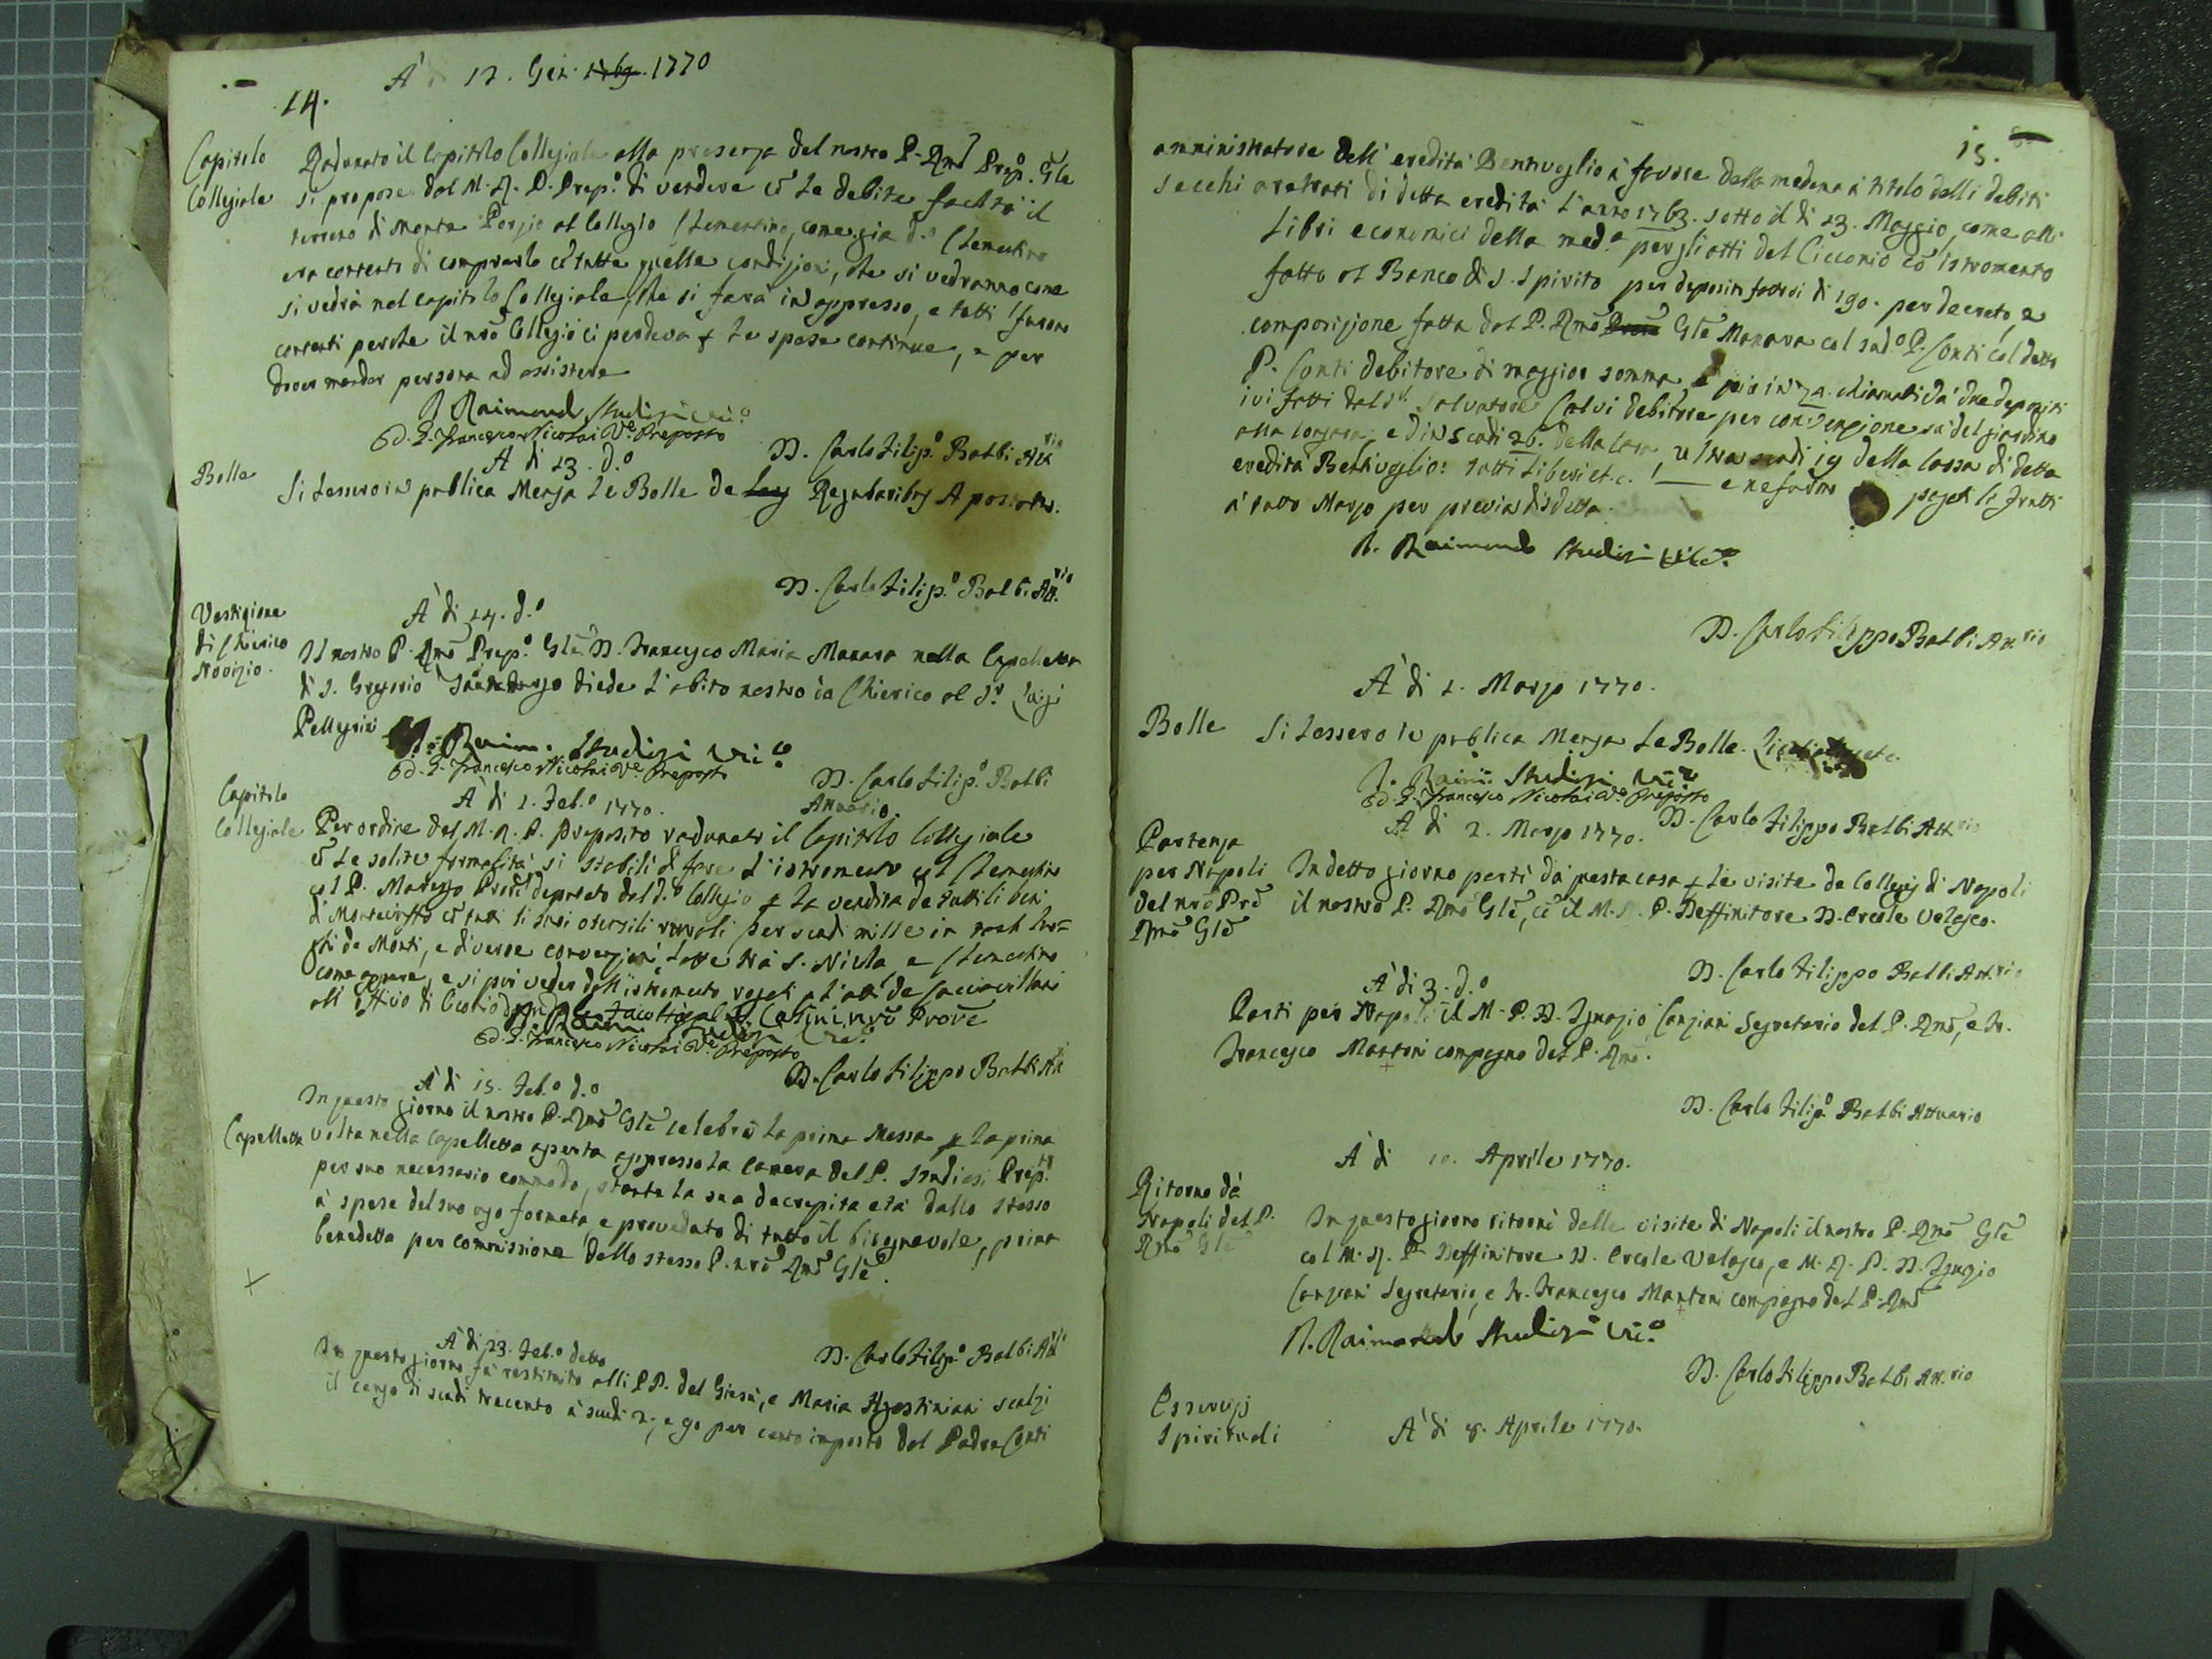 14.
A 12. Gen. 1770
Capitolo
Collegiale
Radunato il Capitolo Collegiale alla presenza del nostro P. Rmõ Prep.º Gle
si propose dal M. R. P. Prep.º di vendere cõ le debite facoltà il
terreno di Monte Porzio al Collegio Clementino, come già d.º Clementino
era contento di comprarlo cõ tutte quelle condizioni, che si vedranno come
si vedrà nel capitolo Collegiale, che si farà in appresso, e tutti furono
contenti perche il nrõ Collegio ci perdeva p le spese continue, e per
dover mandar persona ad assistere
R. Raimond. Studiosi Vic.º
D. Francesco Nicolai Ve. Preposto
D. Carlo Filip.º Balbi Att.rio
Bolle
A di 13. d.º
Si lessero in publica Menza le Bolle de Regularibus Apostatis.
D. Carlo Filip.º Balbi Att.rio
Vestizione
di Chierico
Novizio.
A di 14. d.º
Il nostro P. Rmõ Prep.º Glẽ D. Francesco Maria Manara nella Capelletta
di S. Gregorio diede l'abito nostro da Chierico al Sr. Luigi
Pellegrini
Raim. Studiosi Vic.º
D. Francesco Nicolai Ve. Preposto
D. Carlo Filip.º Balbi
Attuario.
Capitolo
Collegiale
A di 1. Feb.º 1770.
Per ordine del M. R. P. Preposito radunato il Capitolo Collegiale
cõ le solite formalità si stabilì di fare l'istromento col Clementino
col P. deputato dal d.º Collegio p la vendita de tutti li beni
di cõ tutti li suoi utensili per scudi mille in
de Monti, e diverse convenzioni fatte trà S. Nicola e Clementino
come appare, e si può veder dall'istromento
all'offitio di nrõ Prove
Raim. Studiosi Vic.º
D. Francesco Nicolai Ve. Preposto
D. Carlo Filippo Balbi Att
A di 15. Feb.º d.º
Capelletta
In questo giorno il nostro P. Rmõ Glẽ celebrò la prima Messa p la prima
volta nella Capelletta aperta appresso la Camera del P. Studiosi Prep.to
per suo necessario commodo, stante la sua decrepita età dallo stesso
à spese del suo uso formata, e proveduto di tutto il bisognevole, prima
benedetta per commissione dello stesso P. nrõ Rmõ Glẽ.
D. Carlo Filip.º Balbi Att.rio
A di 23. Feb.º detto
In questo giorno fù restituito alli PP. del Giesù, e Maria Agostiniani scalzi
il censo di scudi trecento à scudi 2, e 90 per cento imposto dal Padre Conti
15.
amministratore dell' eredità Bentivoglio à favore della medema à titolo delli debiti
secchi aretrati di detta eredità l'anno 1763. sotto il di 23. Maggio, come alli
Libri economici della med.ª per gli atti del Ciccconio cõ istromento
fatto al Banco di S. Spirito per depositi fattisi di 190. per decreto, e
composizione fatta dal P. Rmõ Glẽ Manara col sud.º P. Conti col detto
P. Conti debitore di maggior somma e più in 74. chiamati da due depositi
ivi fatti dal Sr. Salvatore Calvi debitore per convenzione sù del giardino
alla longara, e di in scudi 26. della casa, ultra scudi 19 della cassa di detta
eredità Bentivoglio: tutti liberi et.c. — e ne furono pagati li frutti
à tutto Marzo per previa disdetta.
R. Raimondo Studiosi Vic.º
D. Carlo Filippo Balbi Att.rio
A di 1. Marzo 1770.
Bolle
Si lessero in publica Menza le Bolle.
R. Raim. Studiosi Vic.º
D. Francesco Nicolai Ve. Preposto
D. Carlo Filippo Balbi Att.rio
A di 2. Marzo 1770.
Partenza
per Napoli
del nrõ Prõ
Rmõ Glẽ
In detto giorno partì da questa casa p le visite de Collegj di Napoli
il nostro P. Rmõ Glẽ, cõ il M. R. P. Deffinitore D. Ercole Velasco.
D. Carlo Filippo Balbi Att.rio
A di 3. d.º
Partì per Napoli il M. P. D. Ignazio Canziani Segretario del P. Rmõ, e Fr.
Francesco Mantoni compagno del P. Rmõ.
D. Carlo Filip.º Balbi Attuario
A di 10. Aprile 1770.
Ritorno da
Napoli del P.
Rmõ Glẽ
In questo giorno ritornò dalle visite di Napoli il nostro P. Rmõ Glẽ
col M. R. P. Deffinitore D. Ercole Velasco, e M. R. P. D. Ignazio
Canziani Segretario, e Fr. Francesco Mantoni compagno del P. Rmõ
R. Raimondo Studiosi Vic.º
D. Carlo Filippo Balbi Att.rio
Essercizj
Spirituali
A di 8. Aprile 1770.